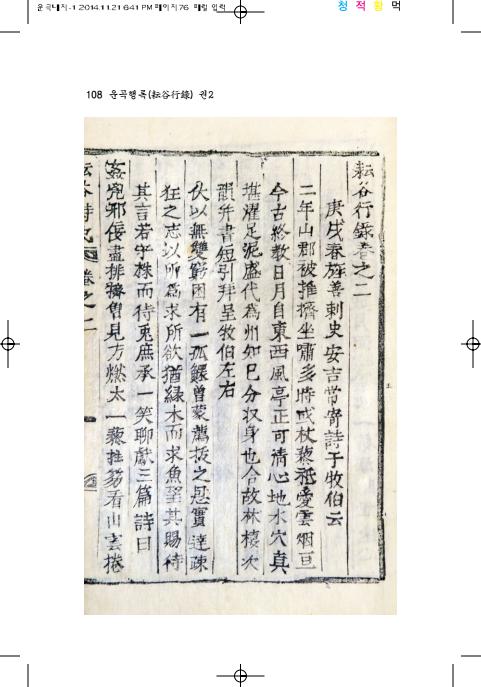 운곡내지-1 2014.11.21 6:41 PM 페이지76 매킬-앤
청 적 황 먹
108 운곡행록(耘谷行錄) 권2
耘谷行錄卷之二
庚戌春旌善刺史安吉常寄詩于牧伯云
二年山郡被推擠坐嘯多時或杖藜祗愛雲烟亘
今古終敎日月自東西風亭正可淸心地水穴真
堪濯足泥盛代爲州知已分收身也合故林棲次
韻幷書短引拜呈牧伯左右
伏以無雙窮困有一孤鰥曾蒙薦拔之恩實達疎
狂之志以所爲求所欲猶緣木而求魚望其賜待
其言若守株而待兎庶承一笑聊獻三篇詩曰
姦兇邪佞盡排擠曾見方燃太一藜拄笏看山雲捲
耘谷詩史 卷之二